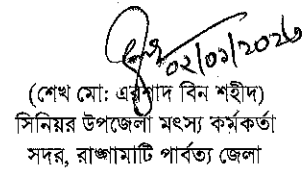 ০২/০১/২০২৩
(শেখ মো: এরশাদ বিন শহীদ)
সিনিয়র উপজেলা মৎস্য কর্মকর্তা
সদর, রাঙ্গামাটি পার্বত্য জেলা